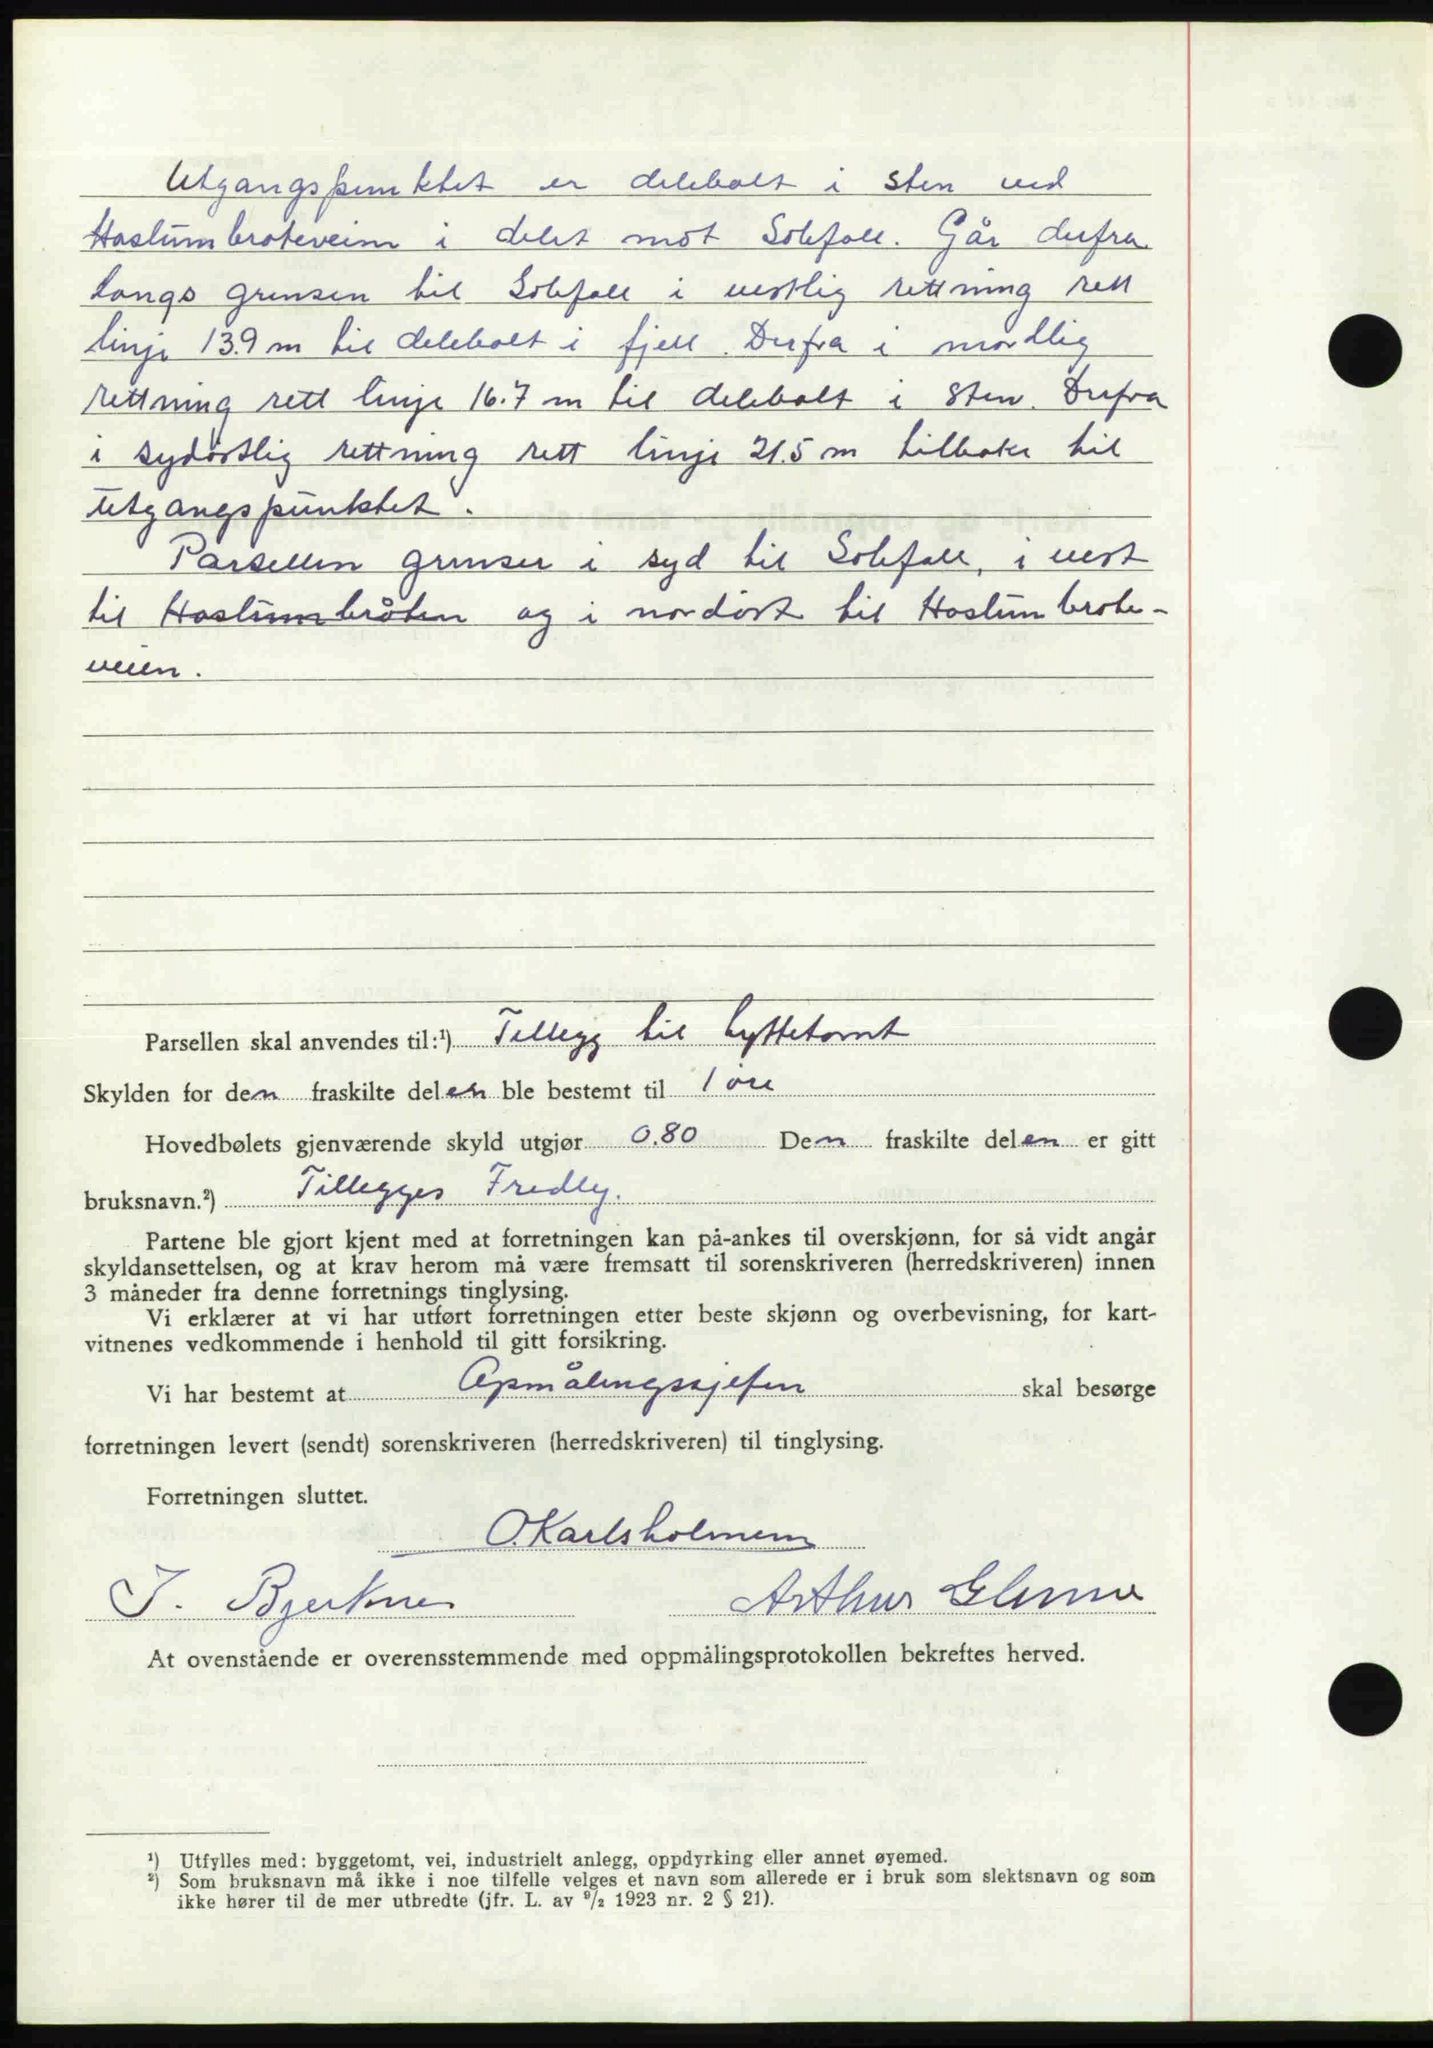 Utgangspunktet er delebolt i sten ved
Haslumbråteveien i delet mot Solefall. Går derfra
langs grensen til Solefall i vestlig rettning rett
linje 13.9 m til delebolt i fjell. Derfra i nordlig
rettning rett linje 16.7 m til delebolt i sten. Derfra
i sydöstlig rettning rett linje 21.5 m tilbake til
utgangspunktet.
Parsellen grenser i syd til Solefall, i vest
til Haslumbråten og i nordöst til Haslumbråte-
veien.
Parsellen skal anvendes til:¹) Tillegg til hyttetomt
Skylden for den fraskilte delen ble bestemt til 1 öre
Hovedbølets gjenværende skyld utgjør 0.80 Den fraskilte delen er gitt
bruksnavn.²) Tillegges Fredly.
Partene ble gjort kjent med at forretningen kan på-ankes til overskjønn, for så vidt angår
skyldansettelsen, og at krav herom må være fremsatt til sorenskriveren (herredskriveren) innen
3 måneder fra denne forretnings tinglysing.
Vi erklærer at vi har utført forretningen etter beste skjønn og overbevisning, for kart-
vitnenes vedkommende i henhold til gitt forsikring.
Vi har bestemt at Opmålingssjefen skal besørge
forretningen levert (sendt) sorenskriveren (herredskriveren) til tinglysing.
Forretningen sluttet.
O. Karlsholmen
J. Bjerknes Arthur
At ovenstående er overensstemmende med oppmålingsprotokollen bekreftes herved.
¹) Utfylles med: byggetomt, vei, industrielt anlegg, oppdyrking eller annet øyemed.
²) Som bruksnavn må ikke i noe tilfelle velges et navn som allerede er i bruk som slektsnavn og som
ikke hører til de mer utbredte (jfr. L. av ⁹/₂ 1923 nr. 2 § 21).